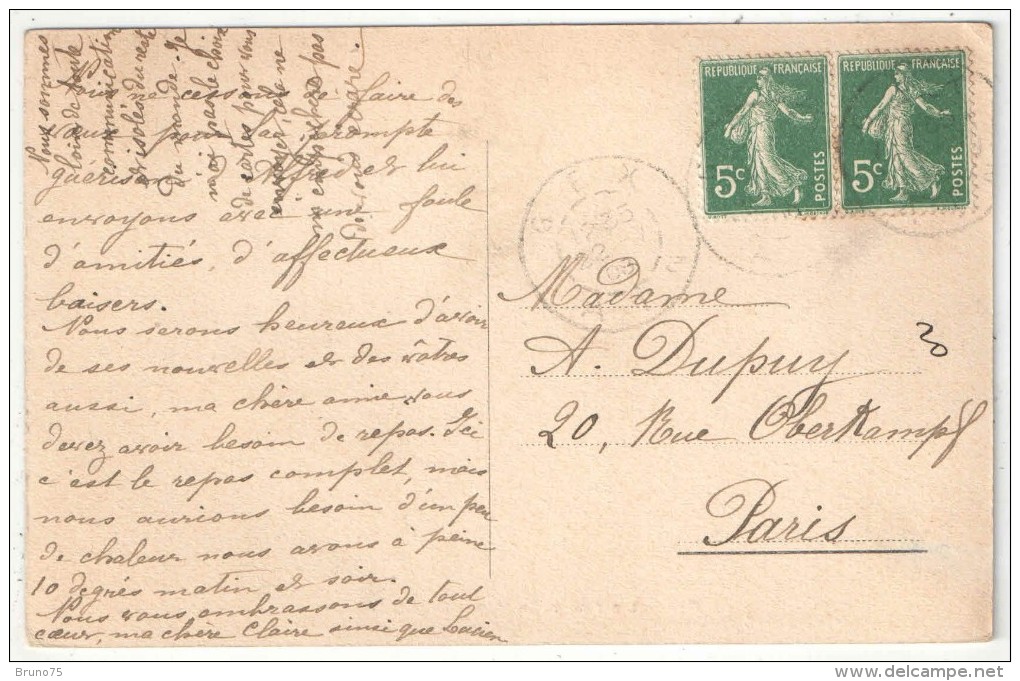 Nous sommes
loin de toute
communication
et isolés du reste
du monde. Je
n'ai pas le choix
de cartes pour vous
envoyer, cela ne
m'empêchera pas
de vous écrire.
Nous ne cessons de faire des
vœux pour sa prompte
guérison. Alfred et lui
envoyons avec une foule
d'amitiés, d'affectueux
baisers.
Nous serons heureux d'avoir
de ses nouvelles et des vôtres
aussi, ma chère amie vous
devez avoir besoin de repos. Ici
c'est le repos complet, mais
nous aurions besoin d'un peu
de chaleur nous avons à peine
10 degrés matin et soir.
Nous vous embrassons de tout
cœur, ma chère Claire ainsi que Lucien
REPUBLIQUE FRANÇAISE
5c
POSTES
REPUBLIQUE FRANÇAISE
5c
POSTES
GEX
Madame
A. Dupuy
20, Rue Oberkampf
Paris
30
Bruno75
delcampe.net